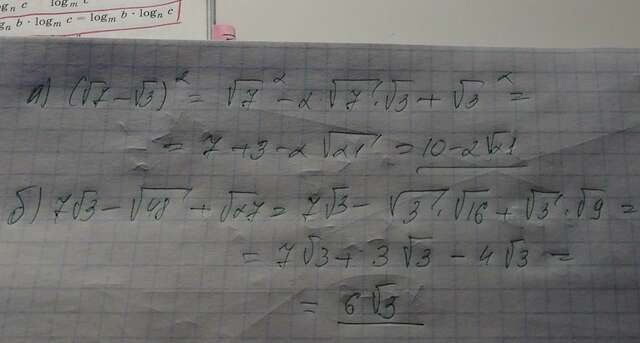 gₙ c = log c
gₙ b · logₘ c = logₘ b · logₙ c
а) (√7 − √3)² = √7² − 2 √7 · √3 + √3² =
= 7 + 3 − 2 √21 = 10 − 2√21
б) 7√3 − √48 + √27 = 7√3 − √3 · √16 + √3 · √9 =
= 7√3 + 3√3 − 4√3 =
= 6√3